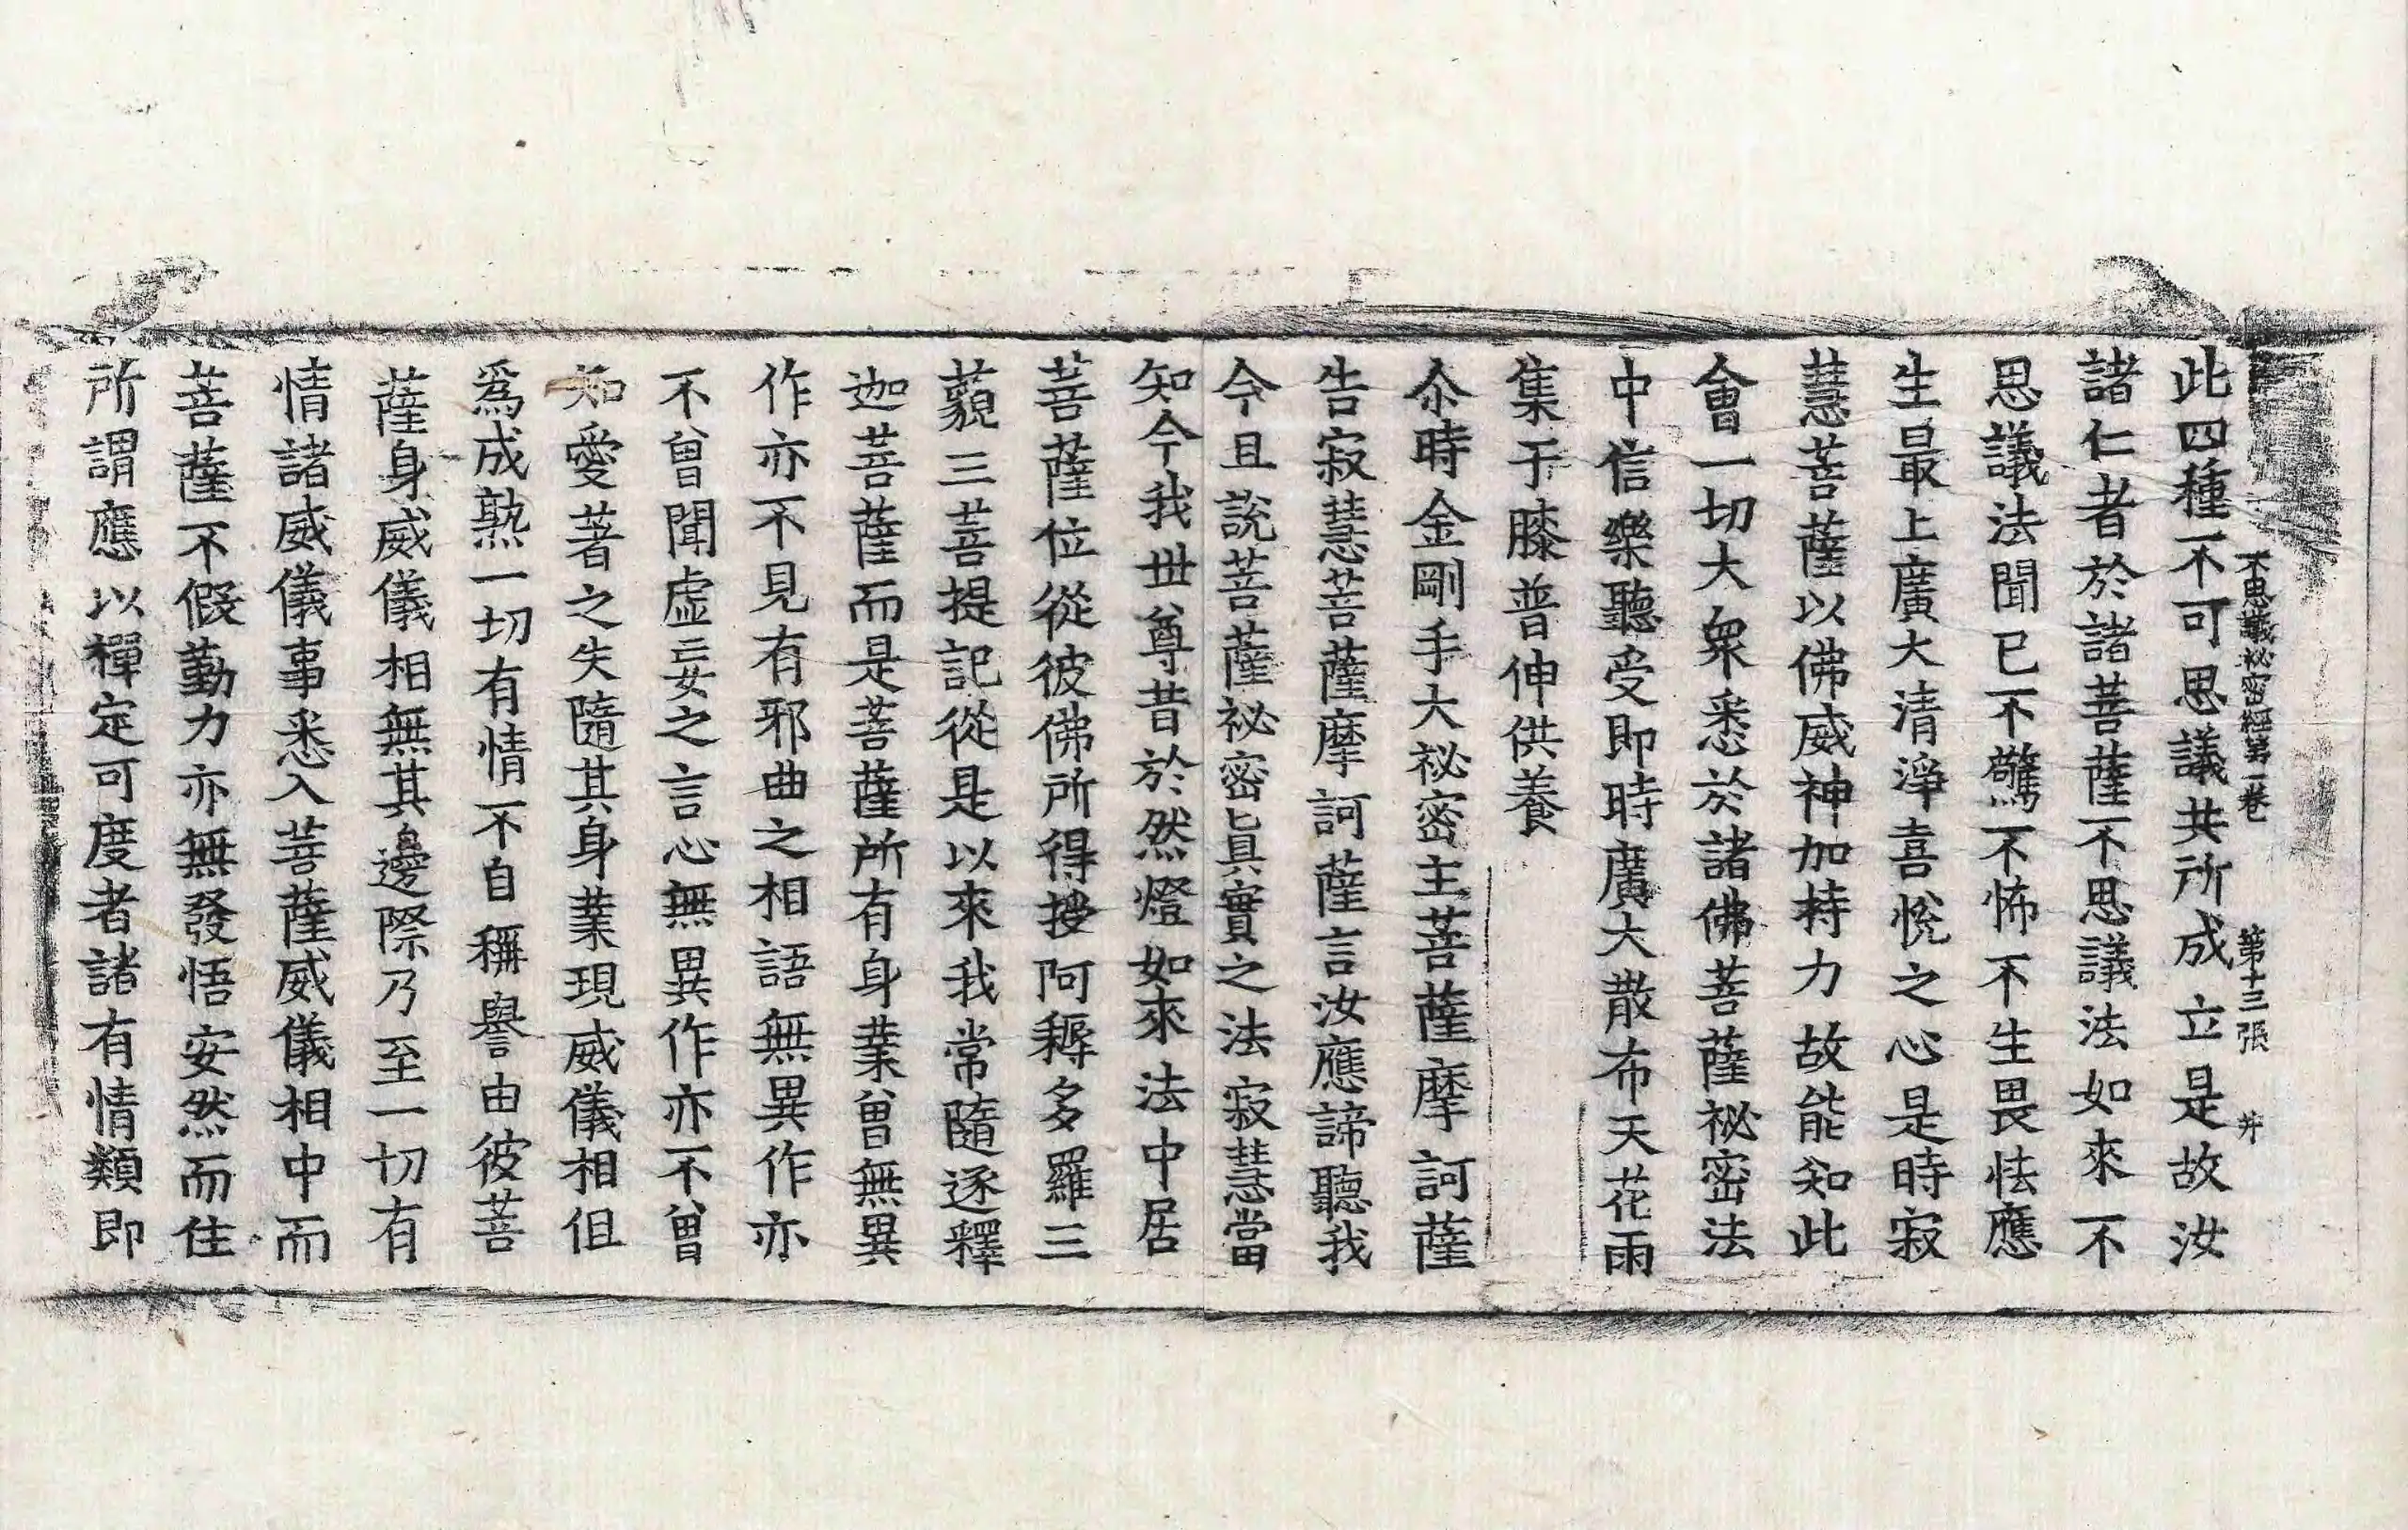 不思議祕密經第一卷 第十三張 井
此四種不可思議共所成立是故汝
諸仁者於諸菩薩不思議法如來不
思議法聞已不驚不怖不生畏怯應
生最上廣大清淨喜悅之心是時寂
慧菩薩以佛威神加持力故能知此
會一切大衆悉於諸佛菩薩祕密法
中信樂聽受即時廣大散布天花雨
集于膝普伸供養
尒時金剛手大祕密主菩薩摩訶薩
告寂慧菩薩摩訶薩言汝應諦聽我
今且說菩薩祕密眞實之法寂慧當
知今我世尊昔於然燈如來法中居
菩薩位從彼佛所得授阿耨多羅三
藐三菩提記從是以來我常隨逐釋
迦菩薩而是菩薩所有身業曾無異
作亦不見有邪曲之相語無異作亦
不曾聞虛妄之言心無異作亦不曾
知愛著之失隨其身業現威儀相但
爲成熟一切有情不自稱譽由彼菩
薩身威儀相無其邊際乃至一切有
情諸威儀事悉入菩薩威儀相中而
菩薩不假勤力亦無發悟安然而住
所謂應以禪定可度者諸有情類即